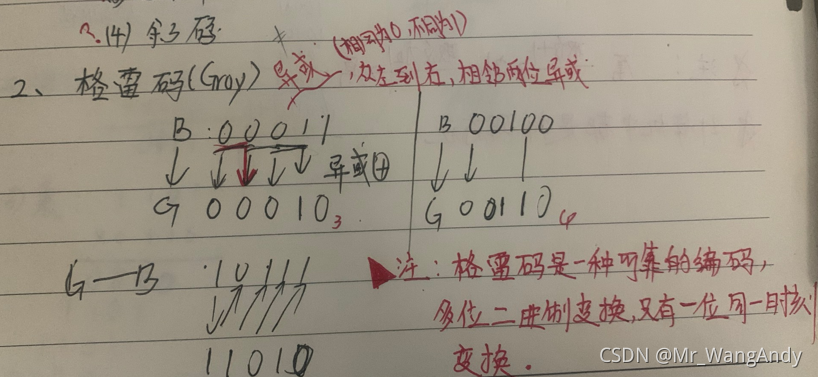 2.(4) 余3码
(相同为0,不同为1)
2、格雷码(Gray) 异或,从左到右,相邻两位异或
B 00011
异或⊕
G 00010 3
B 00100
G 00110 4
G—B 10111
11010
注:格雷码是一种可靠的编码,
多位二进制变换,只有一位同一时刻
变换.
CSDN @Mr_WangAndy